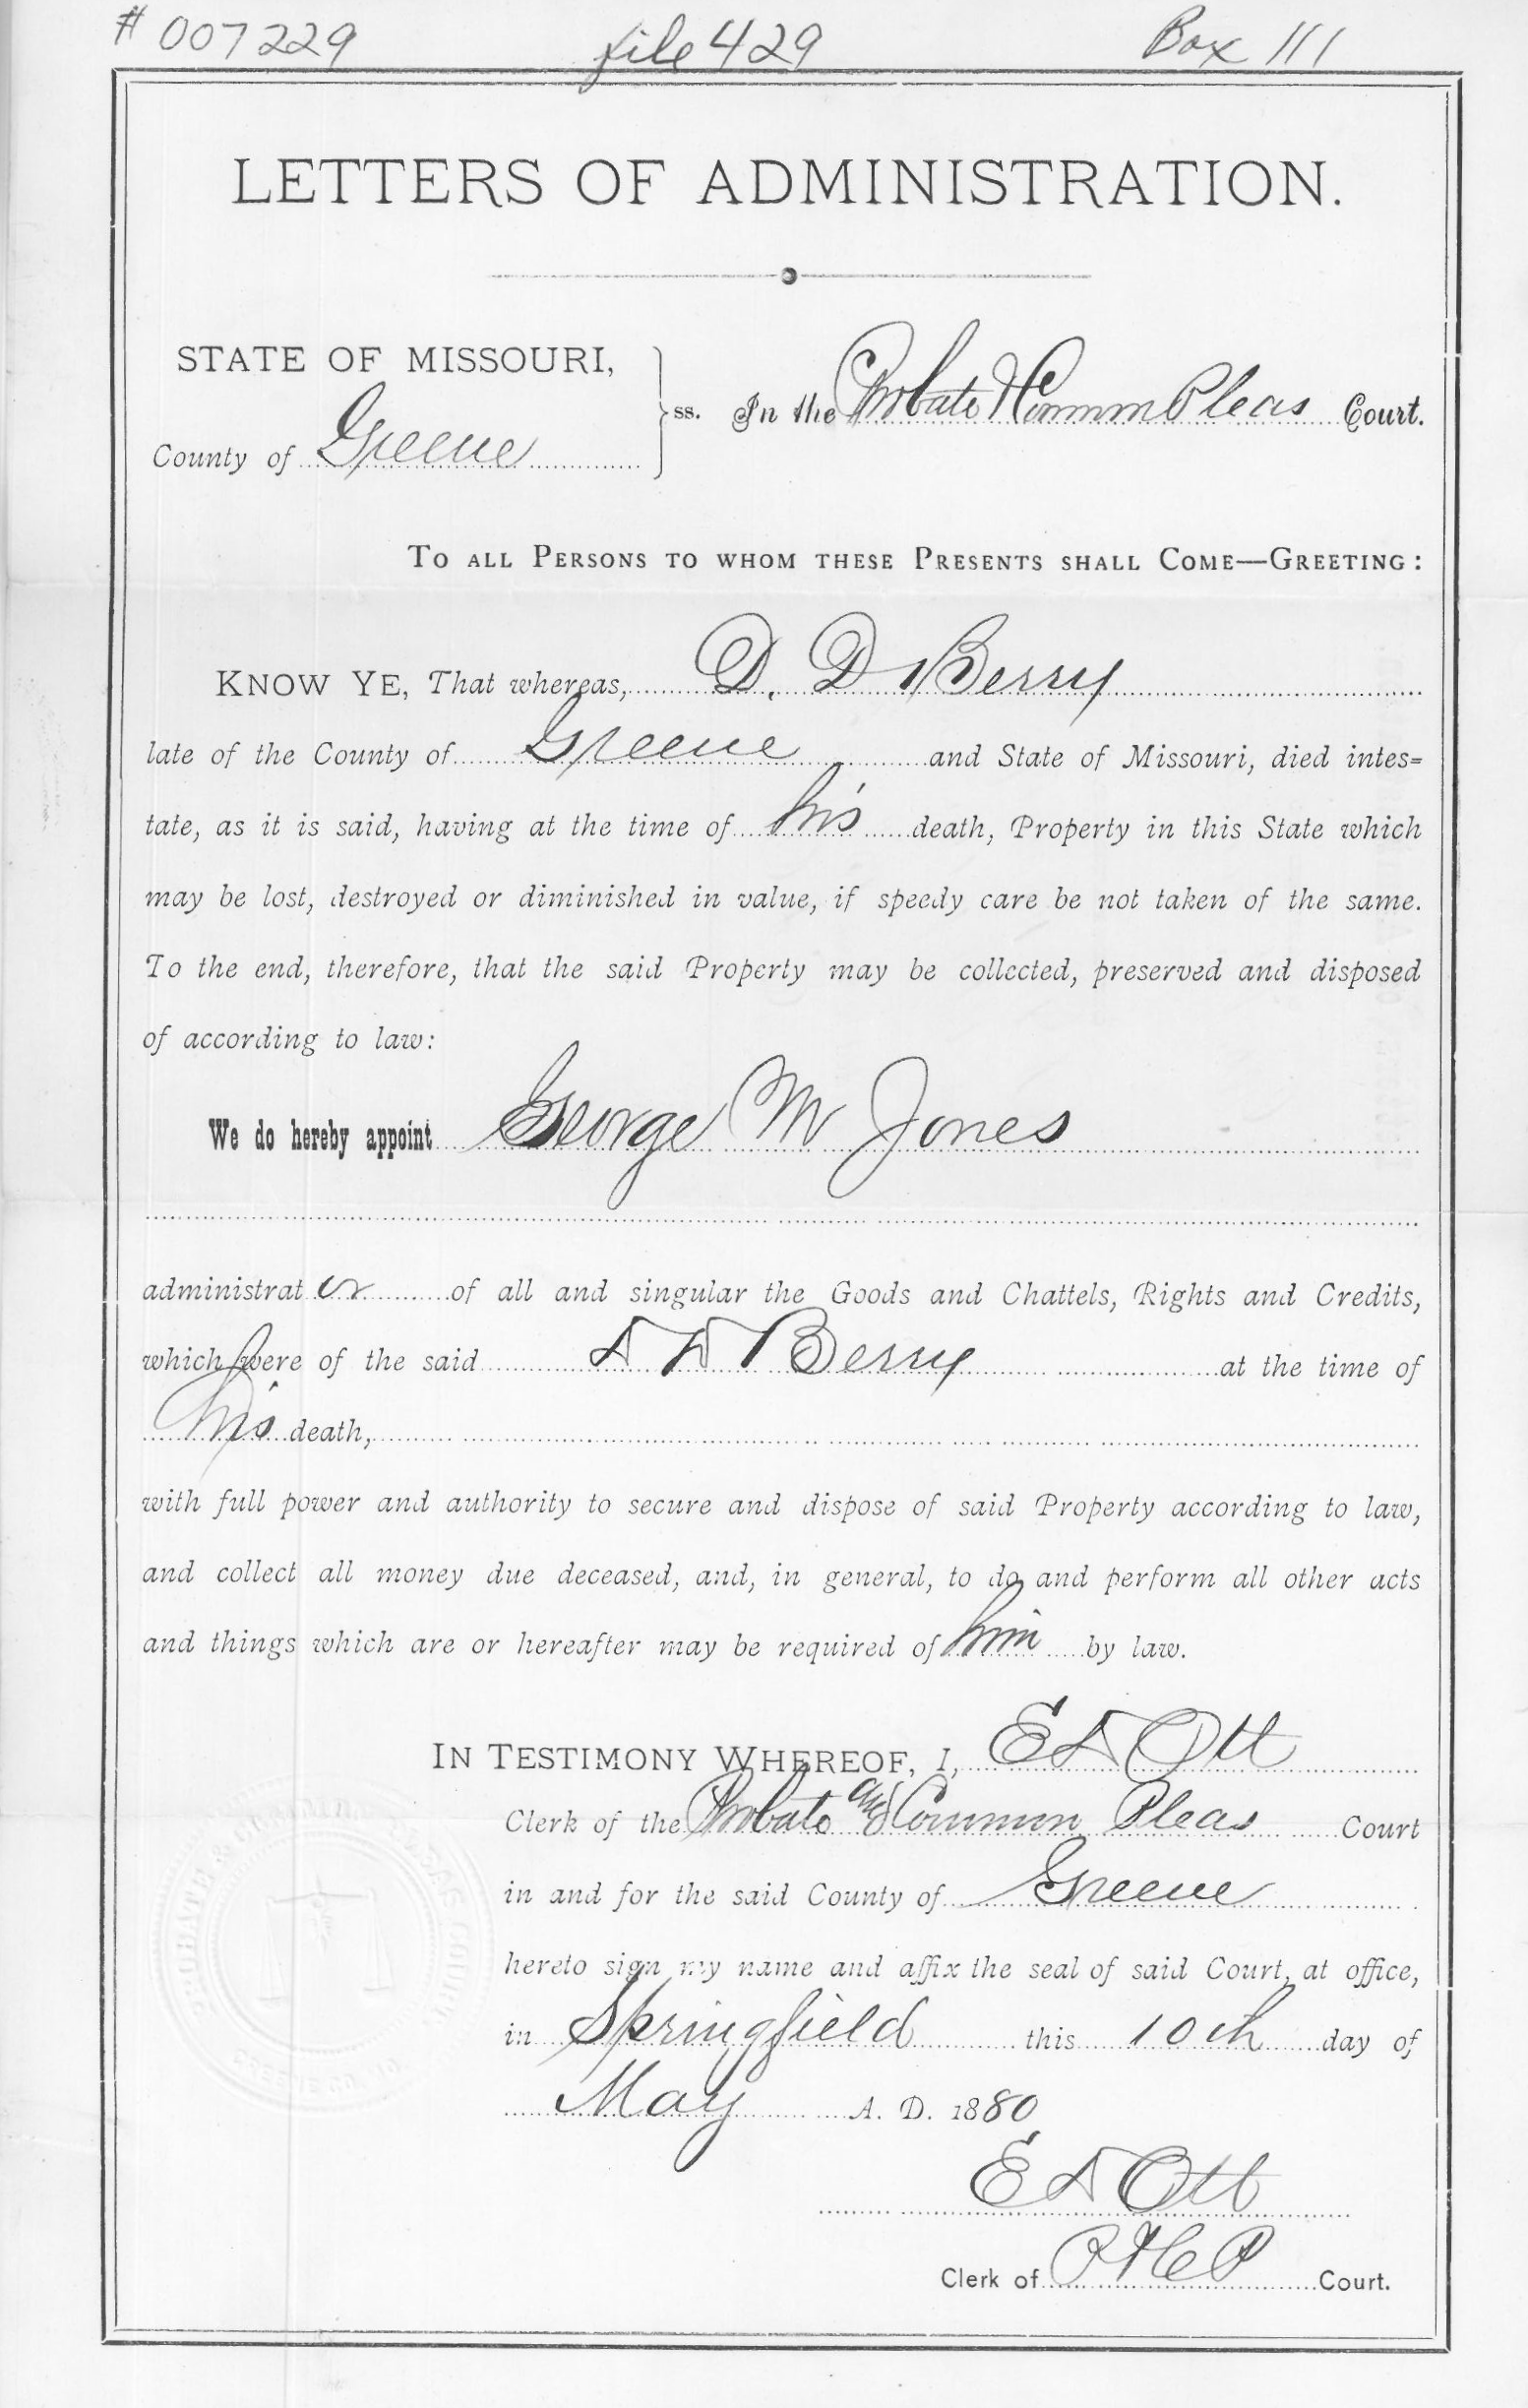 # 007229 file 429 Box 111
LETTERS OF ADMINISTRATION.
STATE OF MISSOURI,
County of Greene
ss. In the Probate & Common Pleas Court.
TO ALL PERSONS TO WHOM THESE PRESENTS SHALL COME—GREETING:
KNOW YE, That whereas, D. D Berry
late of the County of Greene and State of Missouri, died intes=
tate, as it is said, having at the time of his death, Property in this State which
may be lost, destroyed or diminished in value, if speedy care be not taken of the same.
To the end, therefore, that the said Property may be collected, preserved and disposed
of according to law:
We do hereby appoint George M Jones
administrator of all and singular the Goods and Chattels, Rights and Credits,
which were of the said D D Berry at the time of
his death,
with full power and authority to secure and dispose of said Property according to law,
and collect all money due deceased, and, in general, to do and perform all other acts
and things which are or hereafter may be required of him by law.
IN TESTIMONY WHEREOF, I, E D Ott
Clerk of the Probate and Common Pleas Court
in and for the said County of Greene
hereto sign my name and affix the seal of said Court, at office,
in Springfield this 10th day of
May A. D. 1880
E D Ott
Clerk of P & C P Court.